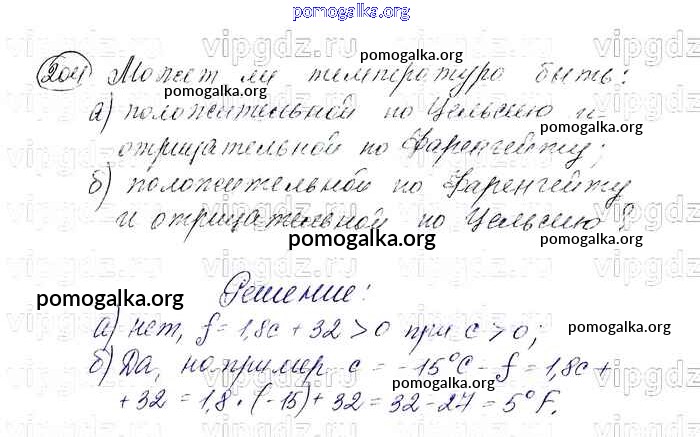 pomogalka.org
204 Может ли температура быть:
а) положительной по Цельсию и
отрицательной по Фаренгейту;
б) положительной по Фаренгейту
и отрицательной по Цельсию?
Решение:
а) нет, f = 1,8c + 32 > 0 при c > 0;
б) Да, например c = -15°C - f = 1,8c +
+ 32 = 1,8 · (-15) + 32 = 32 - 27 = 5°F.